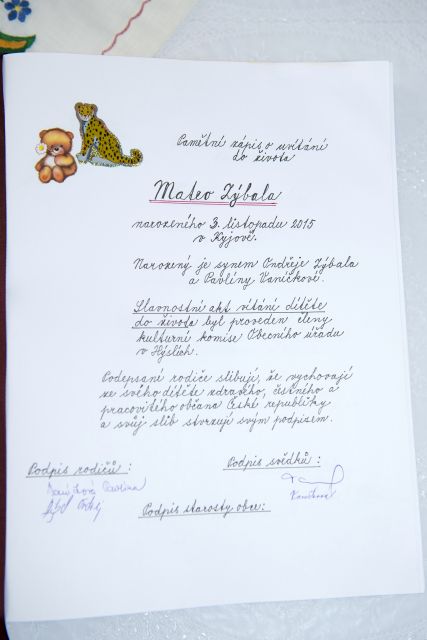 Pamětní zápis o uvítání
do života
Mateo Zýbala
narozeného 3. listopadu 2015
v Kyjově.
Narozený je synem Ondřeje Zýbala
a Pavlíny Vaníčkové.
Slavnostní akt vítání dítěte
do života byl proveden členy
kulturní komise Obecního úřadu
v Hýslích.
Podepsaní rodiče slibují, že vychovají
ze svého dítěte zdravého, čestného a
pracovitého občana České republiky
a svůj slib stvrzují svým podpisem.
Podpis rodičů :
Podpis svědků :
Vaníčková Pavlína
Podpis starosty obce: